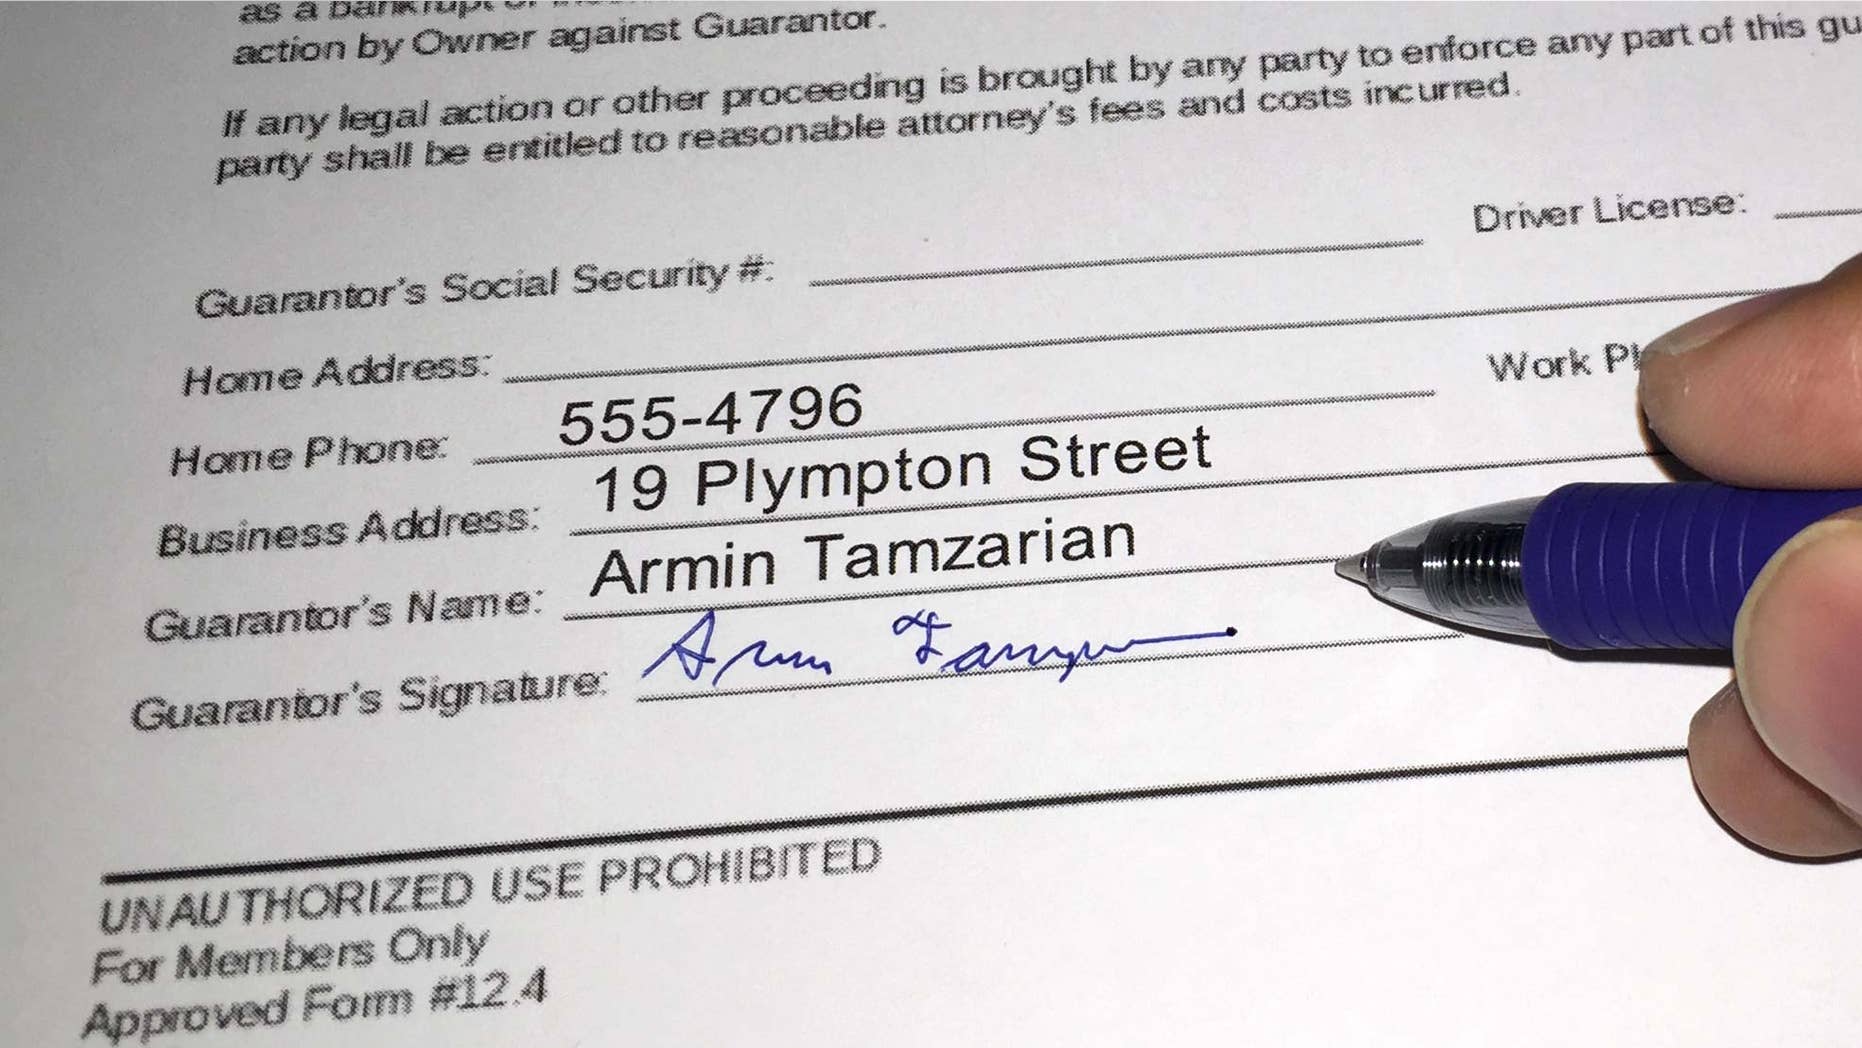 as a bankrupt or
action by Owner against Guarantor.
If any legal action or other proceeding is brought by any party to enforce any part of this gu
party shall be entitled to reasonable attorney's fees and costs incurred.
Guarantor's Social Security #: Driver License:
Home Address:
Home Phone: 555-4796 Work Ph
Business Address: 19 Plympton Street
Guarantor's Name: Armin Tamzarian
Guarantor's Signature: Armin Tamzarian
UNAUTHORIZED USE PROHIBITED
For Members Only
Approved Form #12.4